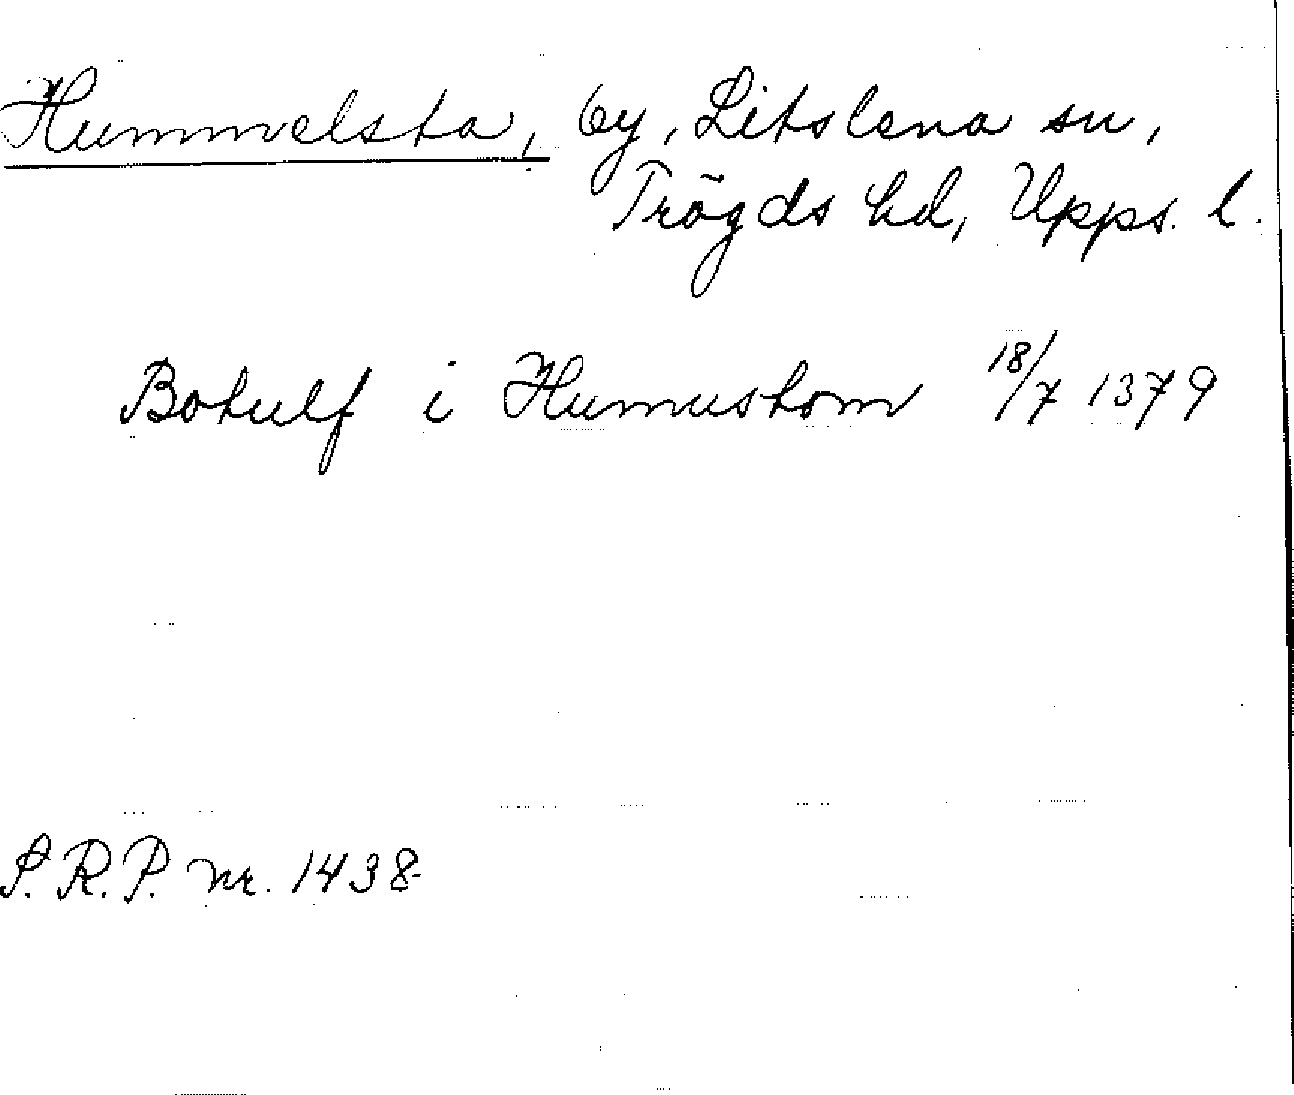 Hummelsta, by, Litslena sn,
Trögds hd, Upps. l.
Botulf i Humustom 18/7 1379
S.R.P. nr. 1438